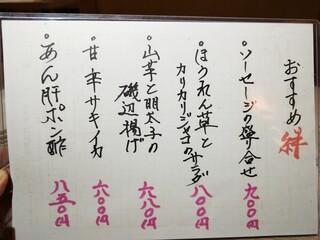 おすすめ 絆
○ソーセージの盛り合せ 九〇〇円
○ほうれん草と
カリカリジャコのサラダ 八〇〇円
○山芋と明太子の
磯辺揚げ 六八〇円
○甘辛サキイカ 六〇〇円
○あん肝ポン酢 八五〇円